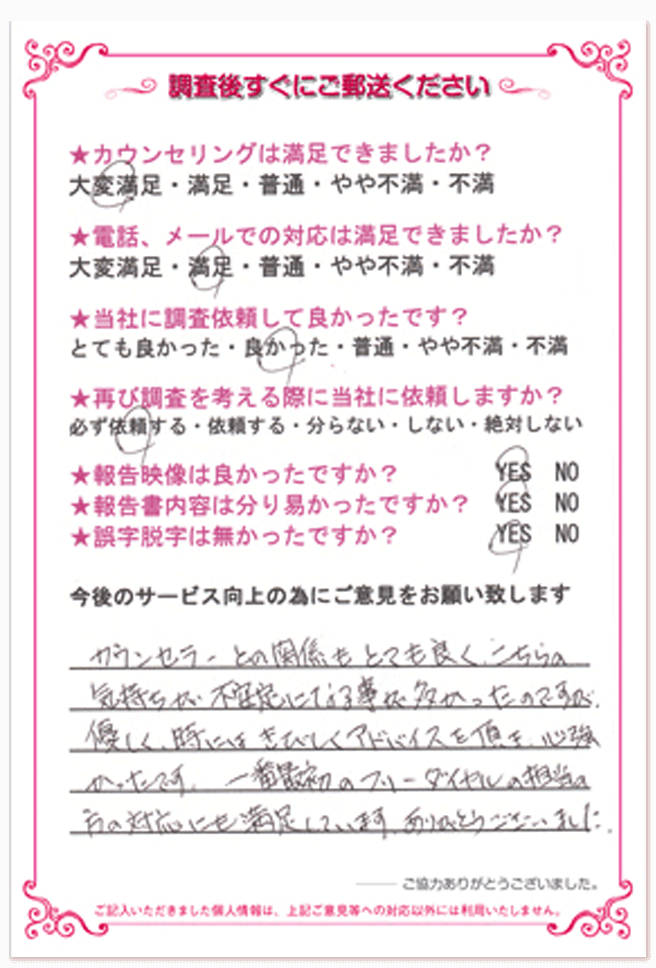 調査後すぐにご郵送ください
★カウンセリングは満足できましたか？
大変満足・満足・普通・やや不満・不満
★電話、メールでの対応は満足できましたか？
大変満足・満足・普通・やや不満・不満
★当社に調査依頼して良かったです？
とても良かった・良かった・普通・やや不満・不満
★再び調査を考える際に当社に依頼しますか？
必ず依頼する・依頼する・分らない・しない・絶対しない
★報告映像は良かったですか？ YES NO
★報告書内容は分り易かったですか？ YES NO
★誤字脱字は無かったですか？ YES NO
今後のサービス向上の為にご意見をお願い致します
カウンセラーとの関係もとても良く、こちらの
気持ちが不安定になる事が多かったのですが、
優しく、時にはきびしくアドバイスを頂き、心強
かったです。一番最初のフリーダイヤルの担当の
方の対応にも満足しています。ありがとうございました。
ご協力ありがとうございました。
ご記入いただきました個人情報は、上記ご意見等への対応以外には利用いたしません。